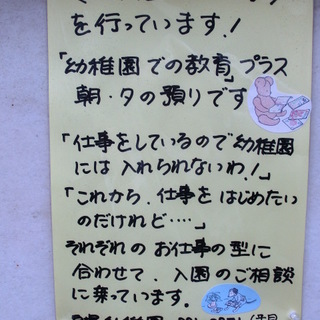 を行っています!
「幼稚園での教育」プラス
朝・夕の預りです
「仕事をしているので幼稚園
には入れられないわ!」
「これから、仕事をはじめたい
のだけれど‥‥」
それぞれのお仕事の型に
合わせて、入園のご相談
に乗っています。